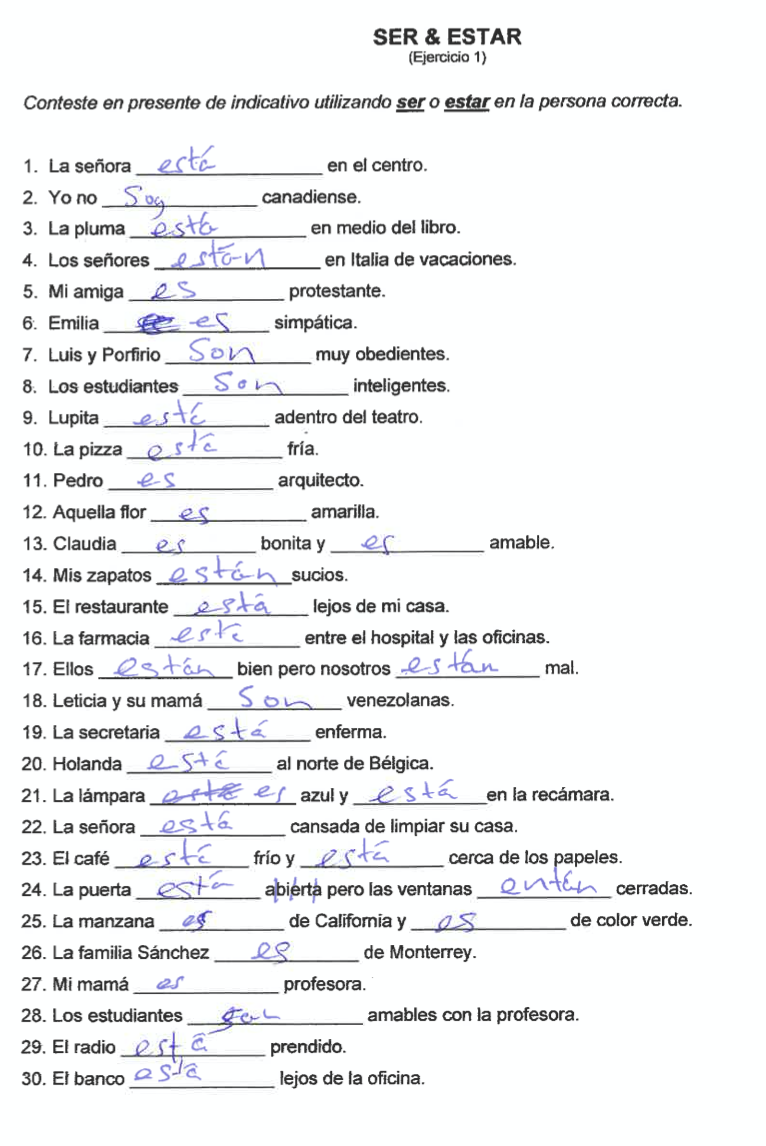 SER & ESTAR
(Ejercicio 1)
Conteste en presente de indicativo utilizando ser o estar en la persona correcta.
1. La señora está en el centro.
2. Yo no Soy canadiense.
3. La pluma está en medio del libro.
4. Los señores están en Italia de vacaciones.
5. Mi amiga es protestante.
6. Emilia es simpática.
7. Luis y Porfirio Son muy obedientes.
8. Los estudiantes Son inteligentes.
9. Lupita está adentro del teatro.
10. La pizza está fría.
11. Pedro es arquitecto.
12. Aquella flor es amarilla.
13. Claudia es bonita y es amable.
14. Mis zapatos están sucios.
15. El restaurante está lejos de mi casa.
16. La farmacia está entre el hospital y las oficinas.
17. Ellos están bien pero nosotros están mal.
18. Leticia y su mamá Son venezolanas.
19. La secretaria está enferma.
20. Holanda está al norte de Bélgica.
21. La lámpara está es azul y está en la recámara.
22. La señora está cansada de limpiar su casa.
23. El café está frío y está cerca de los papeles.
24. La puerta está abierta pero las ventanas entán cerradas.
25. La manzana es de California y es de color verde.
26. La familia Sánchez es de Monterrey.
27. Mi mamá es profesora.
28. Los estudiantes son amables con la profesora.
29. El radio está prendido.
30. El banco está lejos de la oficina.